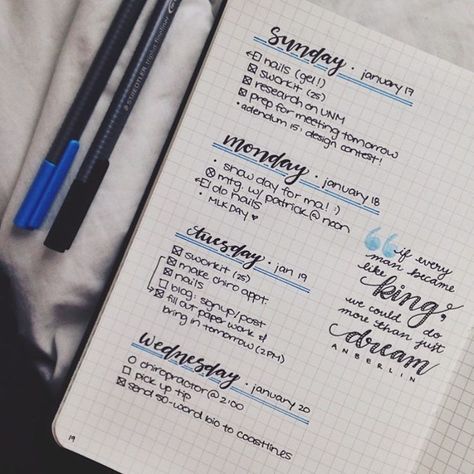 STAEDTLER triplus fineliner
Sunday . january 17
nails (gel!)
sworkit (25)
research on UNM
prep for meeting tomorrow
• adendum 15: design contest!
monday . january 18
• snow day for ma! :)
mtg. w/ patrick @ noon
do nails
• MLK DAY ♥
tuesday . jan 19
sworkit (25)
make chiro appt.
nails
blog: signup/post
fill out paper work &
bring in tomorrow (2PM)
wednesday . january 20
chiropractor @ 2:00
pick up tip
send 50-word bio to coastlines
“if every
man became
like
king,
we could do
more than just
dream
ANBERLIN
19